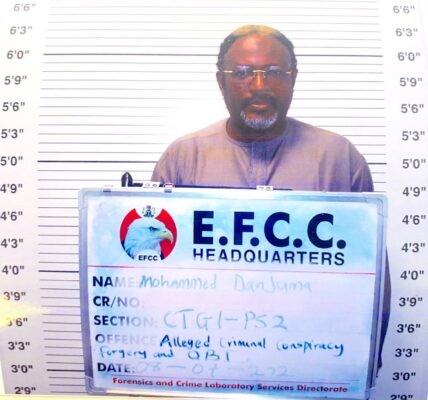 6'6" 6'6"
6'3" 6'3"
6'0" 6'0"
5'9" 5'9"
5'6" 5'6"
5'3" 5'3"
5'0" 5'0"
4'9" 4'9"
4'6" 4'6"
4'3" 4'3"
4'0" 4'0"
3'9" 3'9"
3'6" 3'6"
3'3" 3'3"
3'0" 3'0"
2'9" 2'9"
EFCC
E.F.C.C.
HEADQUARTERS
NAME: Mohammed Danjuma
CR/NO:
SECTION: CTGI-PS2
OFFENCE: Alleged Criminal Conspiracy
Forgery and OBI
DATE:
Forensics and Crime Laboratory Services Directorate